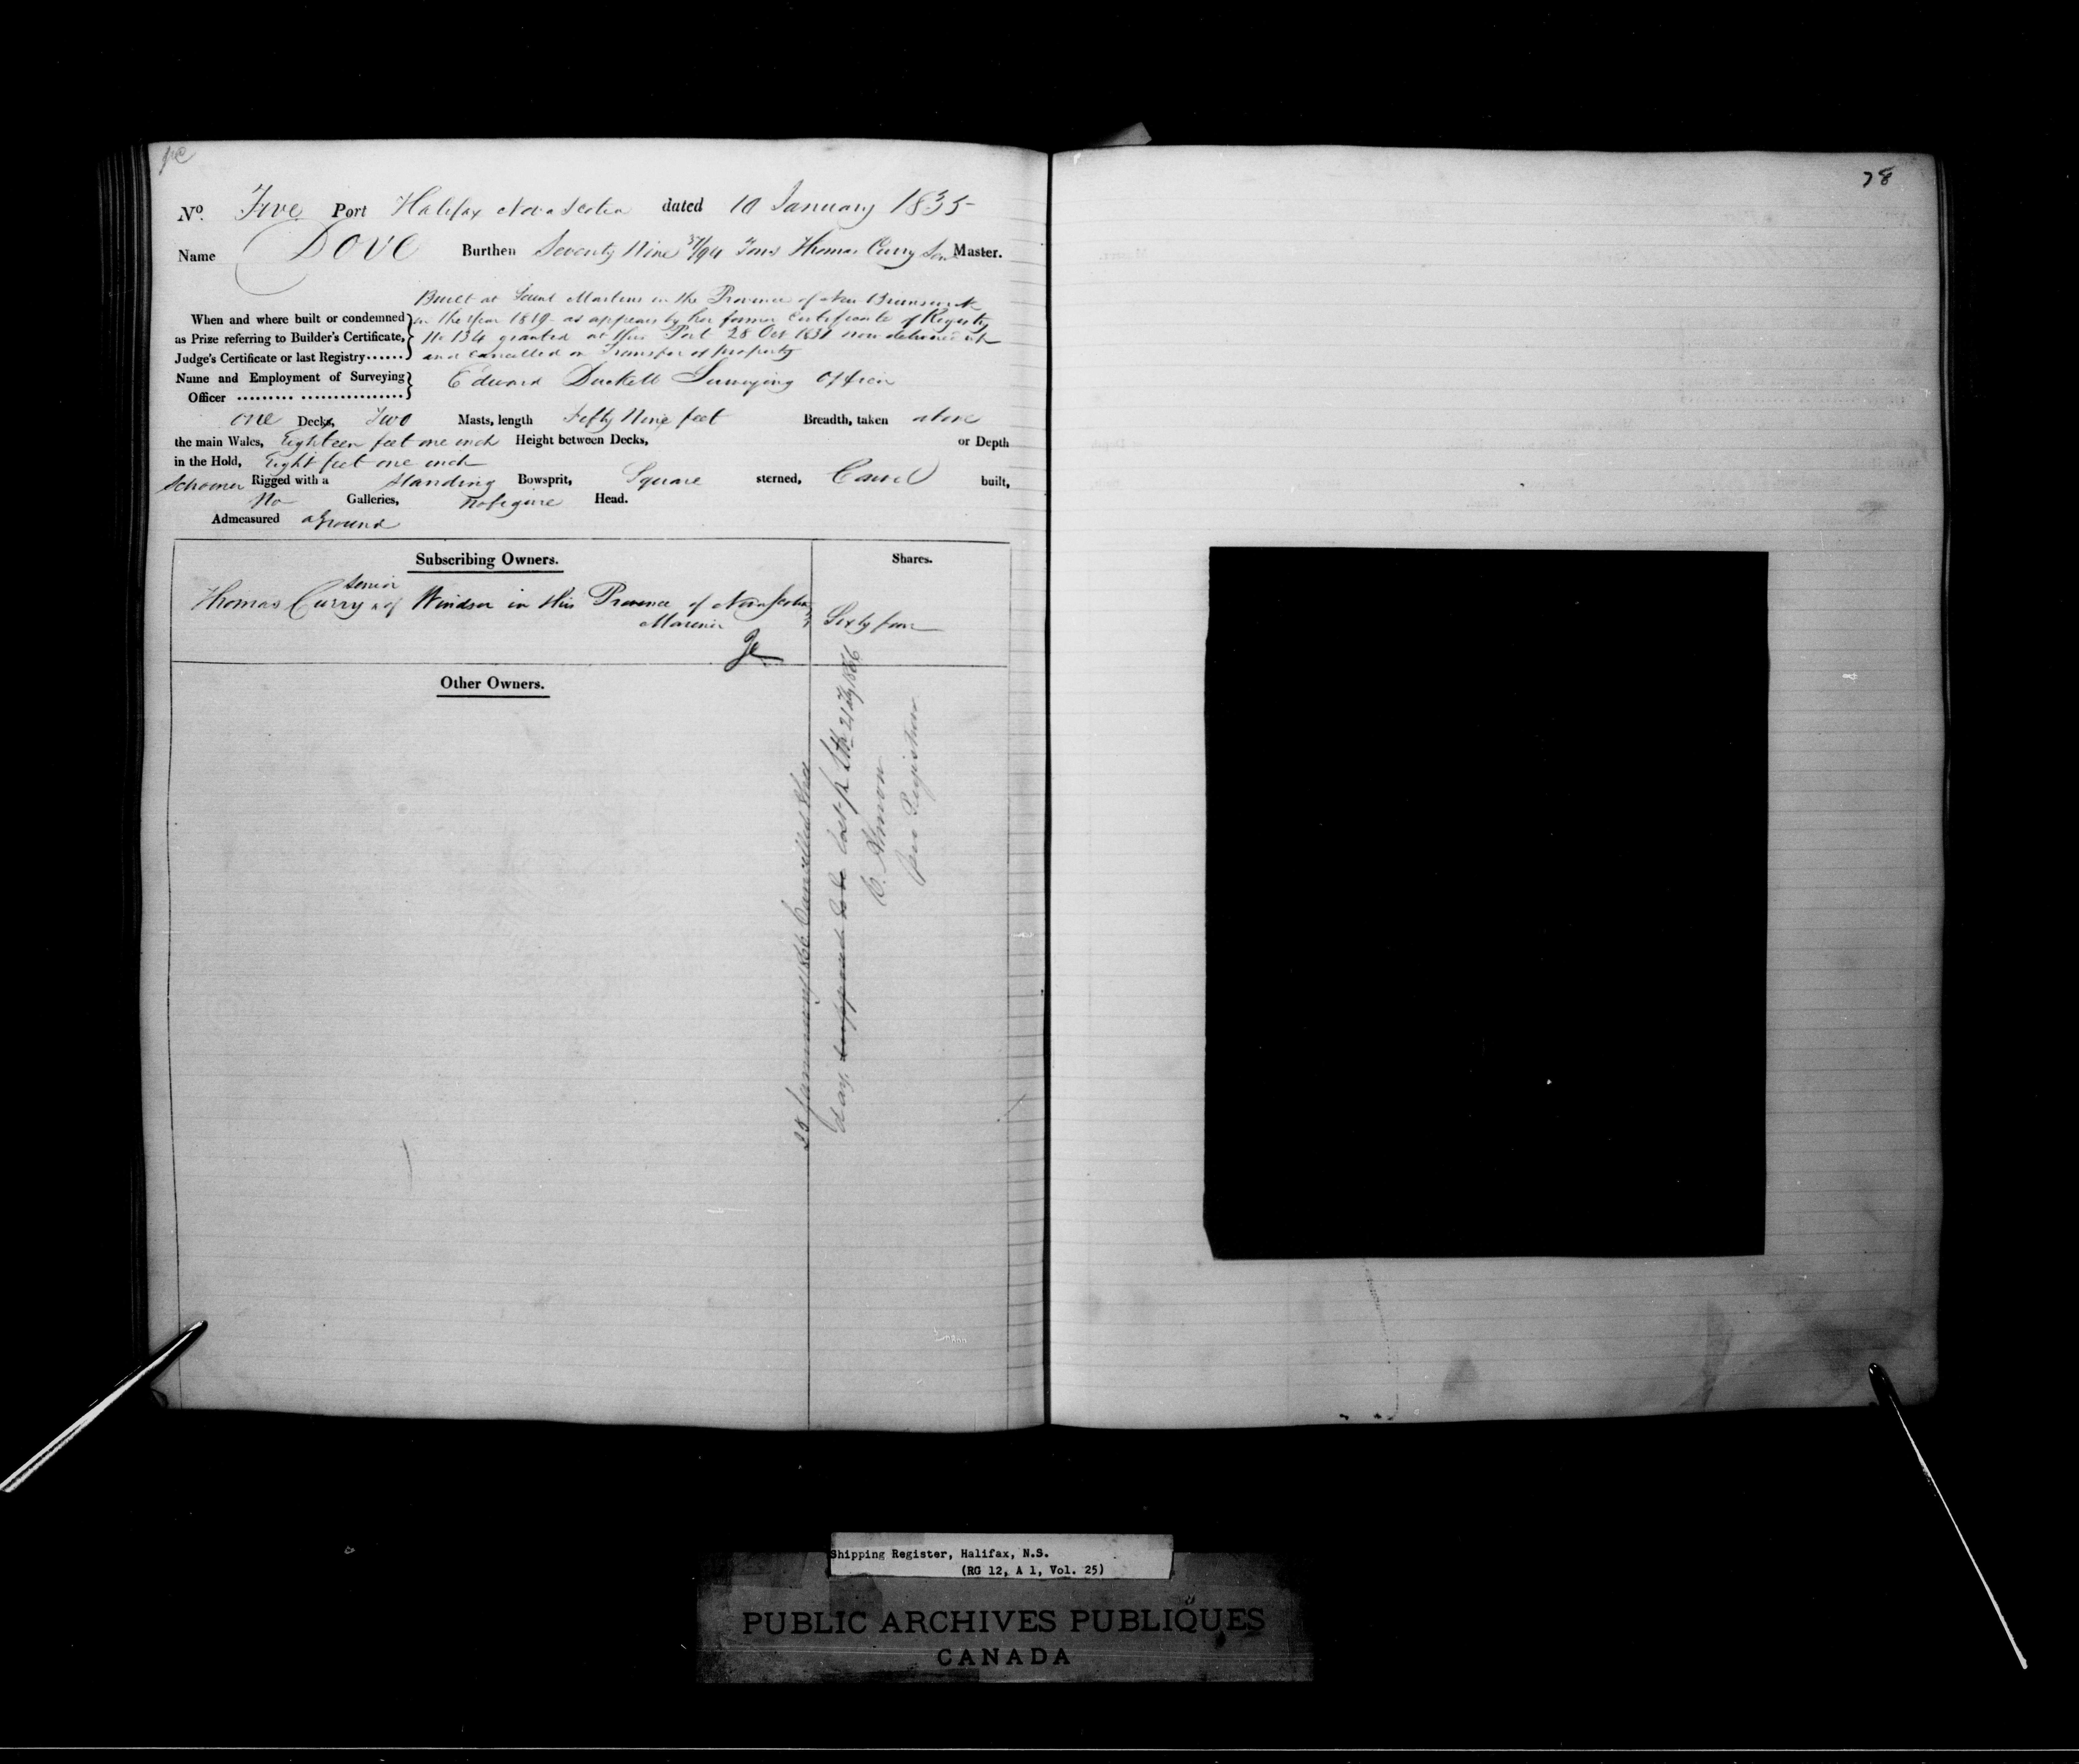 No. Five Port Halifax Nova Scotia dated 10 January 1835
Name Dove Burthen Seventy Nine 37/94 Tons Thomas Curry Senr Master.
Built at Saint Martins in the Province of New Brunswick
When and where built or condemned in the Year 1819 as appears by her former Certificate of Registry
as Prize referring to Builder's Certificate, No 134 granted at this Port 28 Oct 1831 now delivered up
Judge's Certificate or last Registry...... and Cancelled on Transfer of Property
Name and Employment of Surveying Edward Duckett Surveying Officer
Officer
One Decks, Two Masts, length Fifty Nine feet Breadth, taken above
the main Wales, Eighteen feet one inch Height between Decks, or Depth
in the Hold, Eight feet one inch
Schooner Rigged with a Standing Bowsprit, Square sterned, Carvel built,
No Galleries, No figure Head.
Admeasured aground
Subscribing Owners. Shares.
senior
Thomas Curry of Windsor in this Province of Nova Scotia
Mariner Sixty four
Other Owners.
28 January 1866 Cancelled this
day, supposed to be lost 21 1866
C. Almon
Registrar
78
Shipping Register, Halifax, N.S.
(RG 12, A 1, Vol. 25)
PUBLIC ARCHIVES PUBLIQUES
CANADA